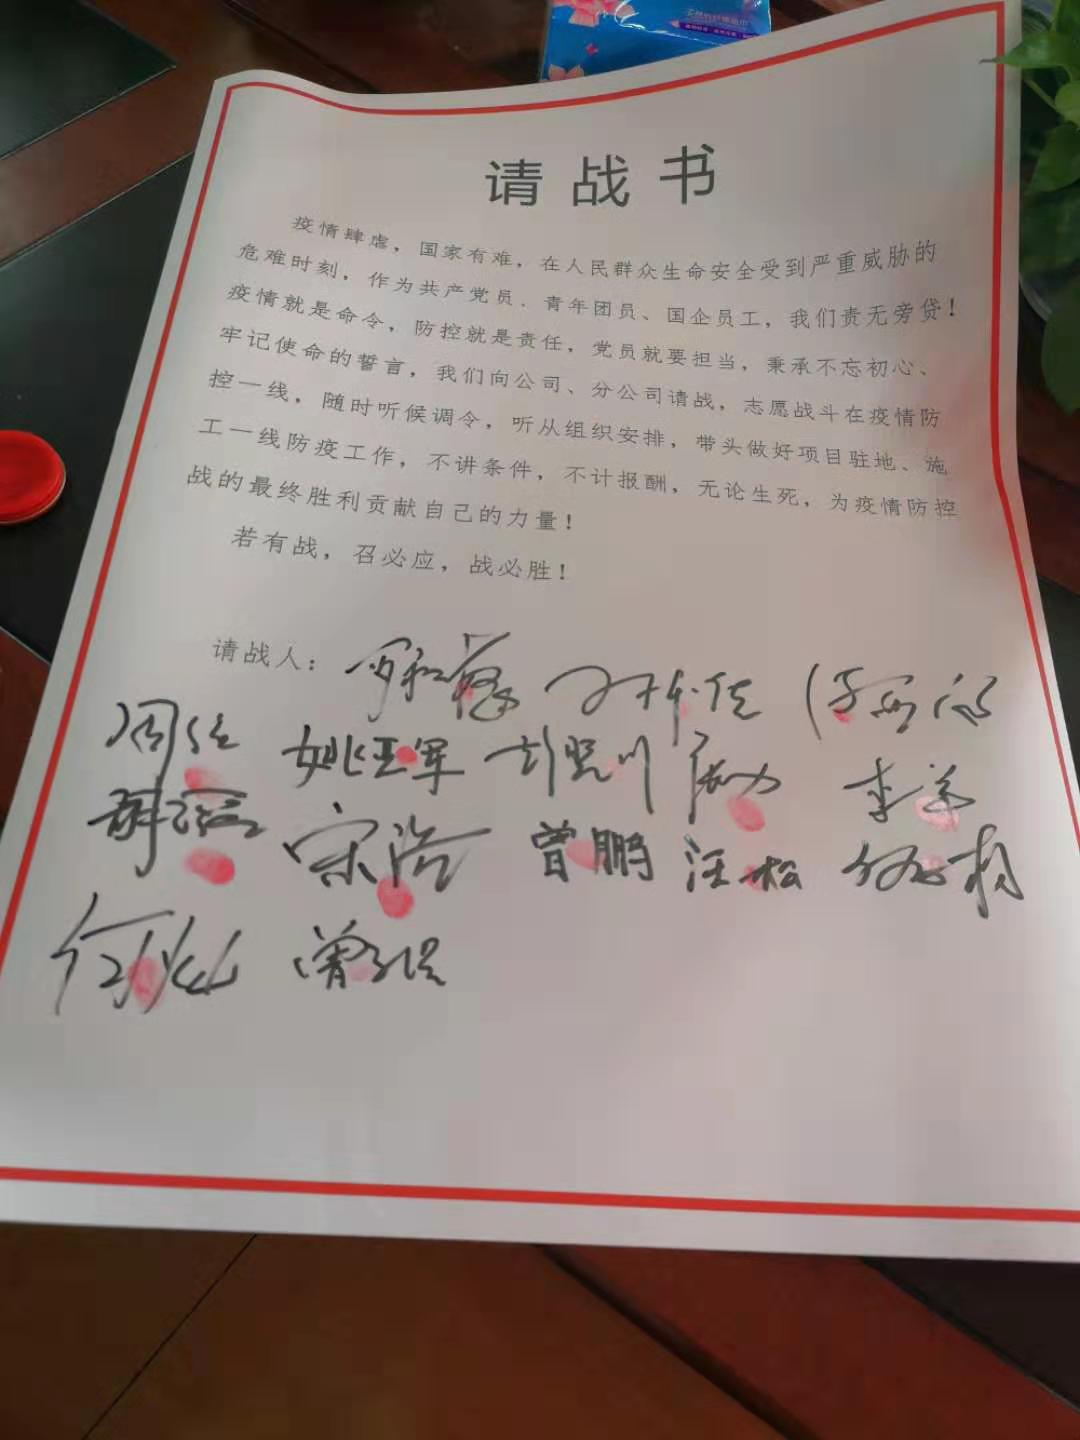 请战书
疫情肆虐，国家有难，在人民群众生命安全受到严重威胁的
危难时刻，作为共产党员、青年团员、国企员工，我们责无旁贷！
疫情就是命令，防控就是责任，党员就要担当，秉承不忘初心、
牢记使命的誓言，我们向公司、分公司请战，志愿战斗在疫情防
控一线，随时听候调令，听从组织安排，带头做好项目驻地、施
工一线防疫工作，不讲条件，不计报酬，无论生死，为疫情防控
战的最终胜利贡献自己的力量！
若有战，召必应，战必胜！
请战人：
姚亚军
宋浩 曾鹏 汪松